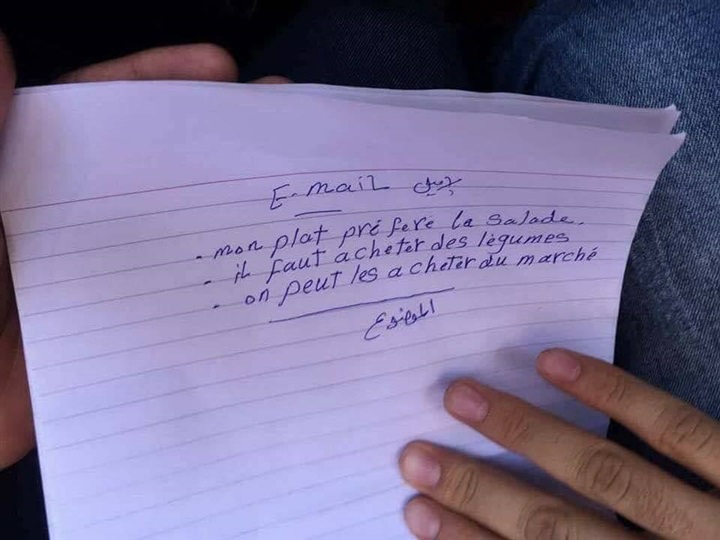 E-mail جميل
- mon plat préfere la salade.
- il faut acheter des légumes
- on peut les acheter du marché
الموضوع